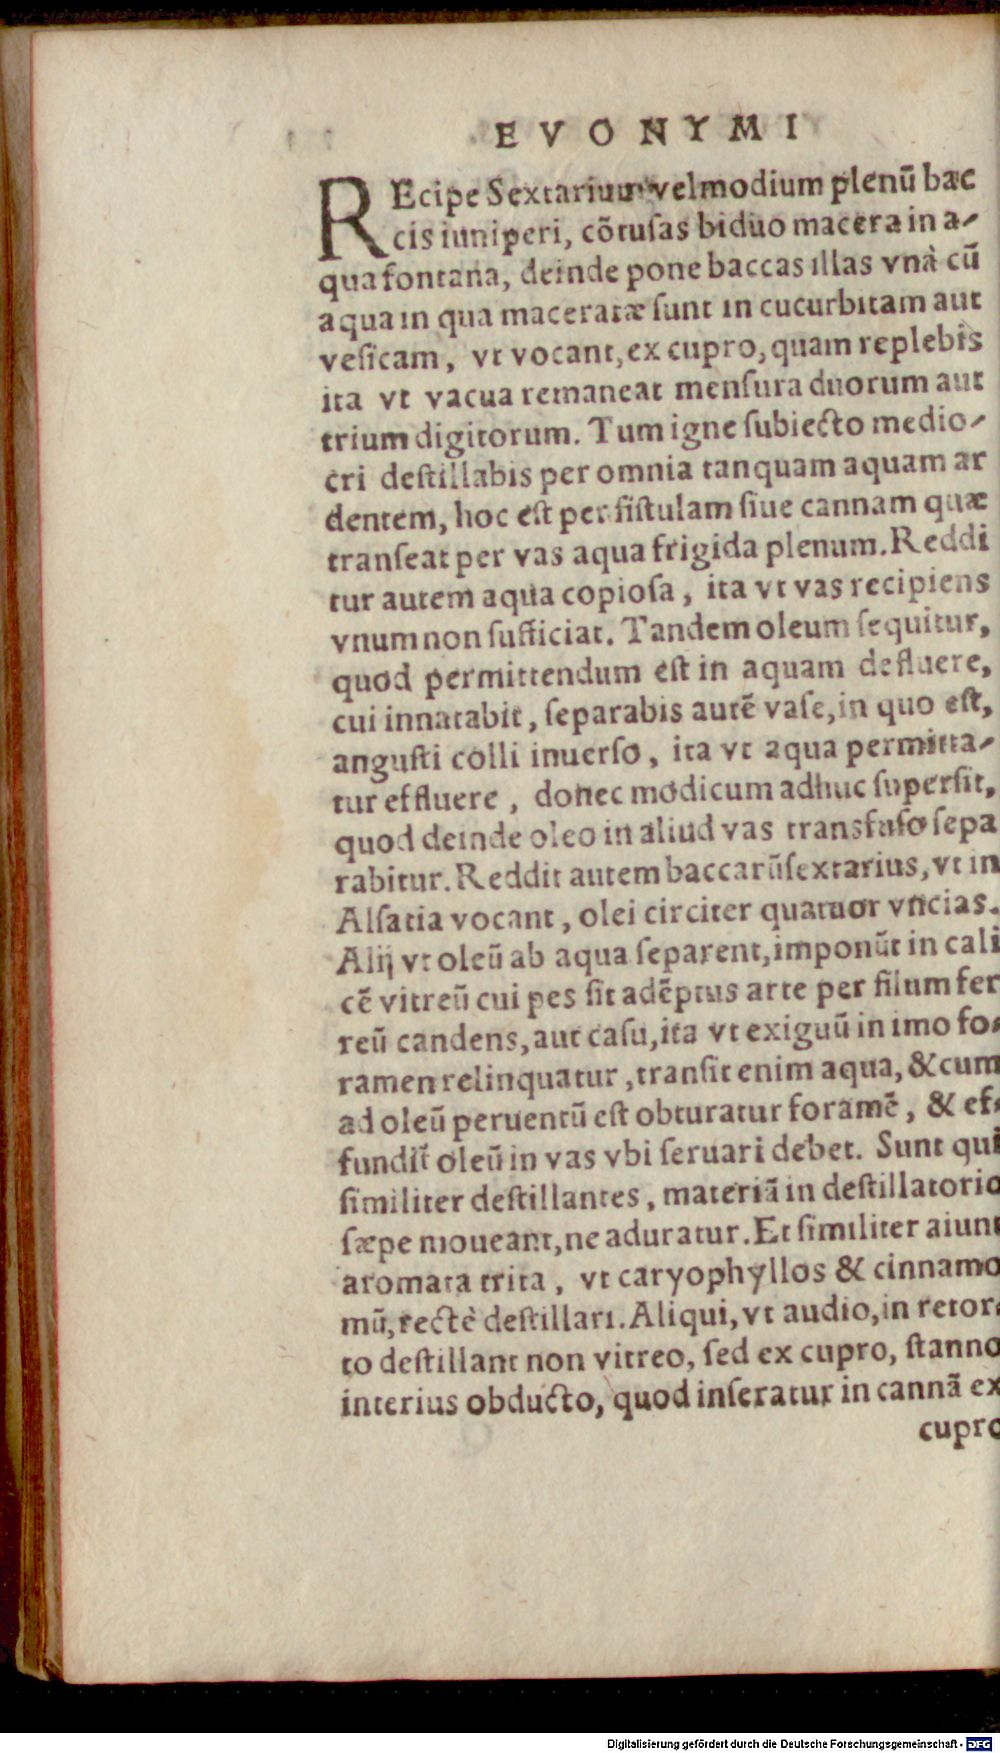 EVONYMI
REcipe Sextarium vel modium plenū bac
cis iuniperi, cõtusas biduo macera in a-
qua fontana, deinde pone baccas illas vnà cū
aqua in qua maceratæ sunt in cucurbitam aut
vesicam, vt vocant, ex cupro, quam replebis
ita vt vacua remaneat mensura duorum aut
trium digitorum. Tum igne subiecto medio-
cri destillabis per omnia tanquam aquam ar
dentem, hoc est per fistulam siue cannam quæ
transeat per vas aqua frigida plenum. Reddi
tur autem aqua copiosa, ita vt vas recipiens
vnum non sufficiat. Tandem oleum sequitur,
quod permittendum est in aquam defluere,
cui innatabit, separabis autē vase, in quo est,
angusti colli inuerso, ita vt aqua permitta-
tur effluere, donec modicum adhuc supersit,
quod deinde oleo in aliud vas transfuso sepa
rabitur. Reddit autem baccarū sextarius, vt in
Alsatia vocant, olei circiter quatuor vncias.
Alij vt oleū ab aqua separent, imponūt in cali
cē vitreū cui pes sit adēptus arte per filum fer
reū candens, aut casu, ita vt exiguū in imo fo-
ramen relinquatur, transit enim aqua, & cum
ad oleū peruentū est obturatur foramē, & ef-
fundit̃ oleū in vas vbi seruari debet. Sunt qui
similiter destillantes, materiã in destillatorio
sæpe moueant, ne aduratur. Et similiter aiunt
aromata trita, vt caryophyllos & cinnamo
mū, rectè destillari. Aliqui, vt audio, in retor-
to destillant non vitreo, sed ex cupro, stanno
interius obducto, quod inseratur in cannã ex
cupro
Digitalisierung gefördert durch die Deutsche Forschungsgemeinschaft - DFG